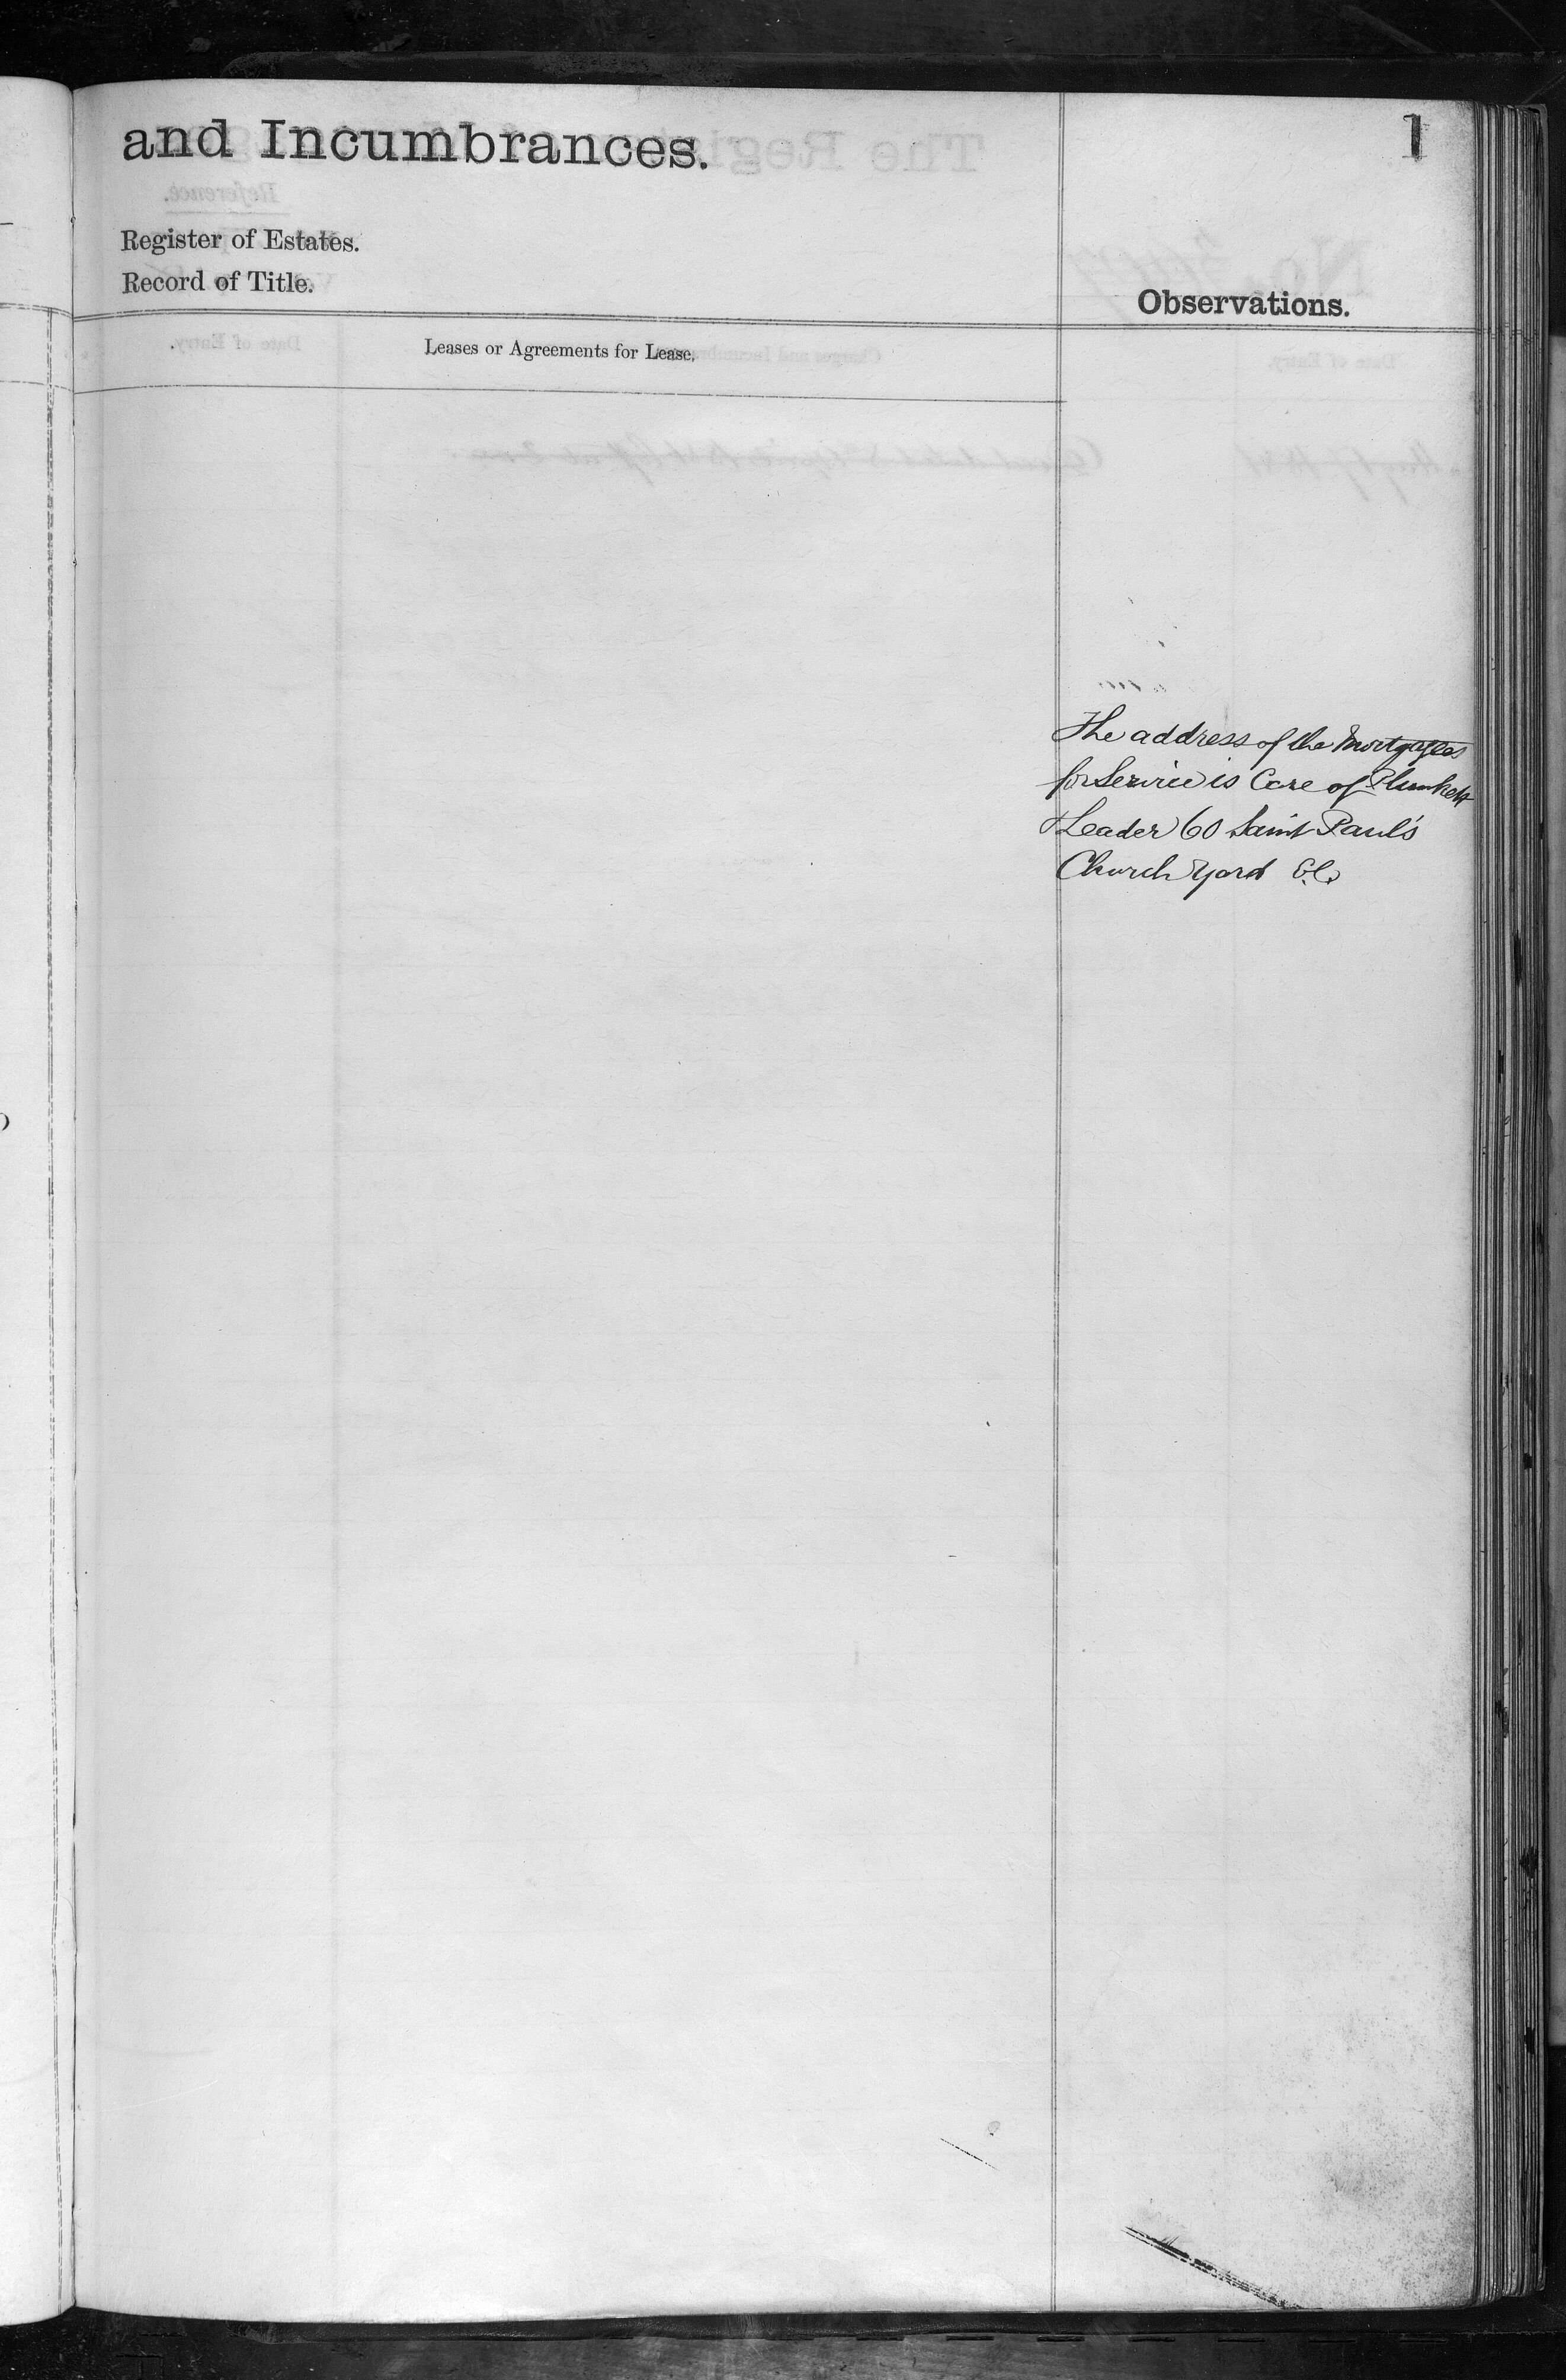 and Incumbrances.
1
Register of Estates.
Record of Title.
Observations.
Leases or Agreements for Lease.
The address of the Mortgagees
for Service is Care of Plunkett
& Leader 60 Saint Paul's
Church Yard E.C.